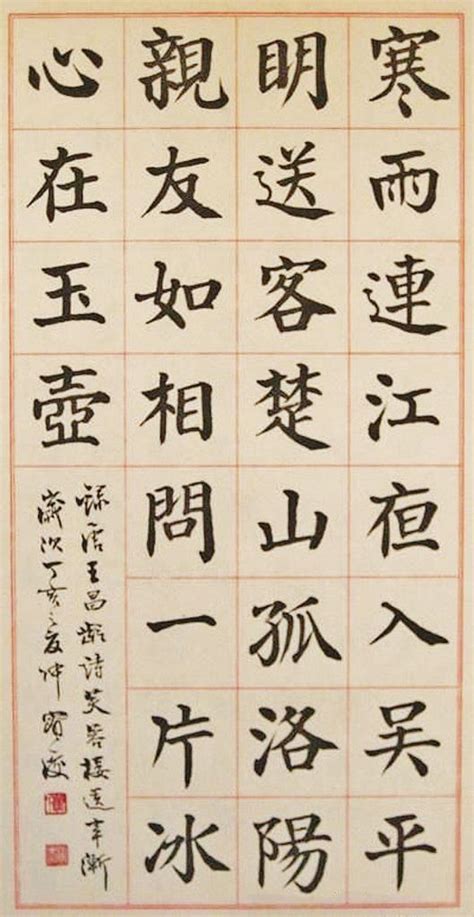 寒雨連江亱入吴平
明送客楚山孤洛陽
親友如相問一片冰
心在玉壺
録唐王昌齡詩芙蓉樓送辛漸
歲次丁亥之夏仲